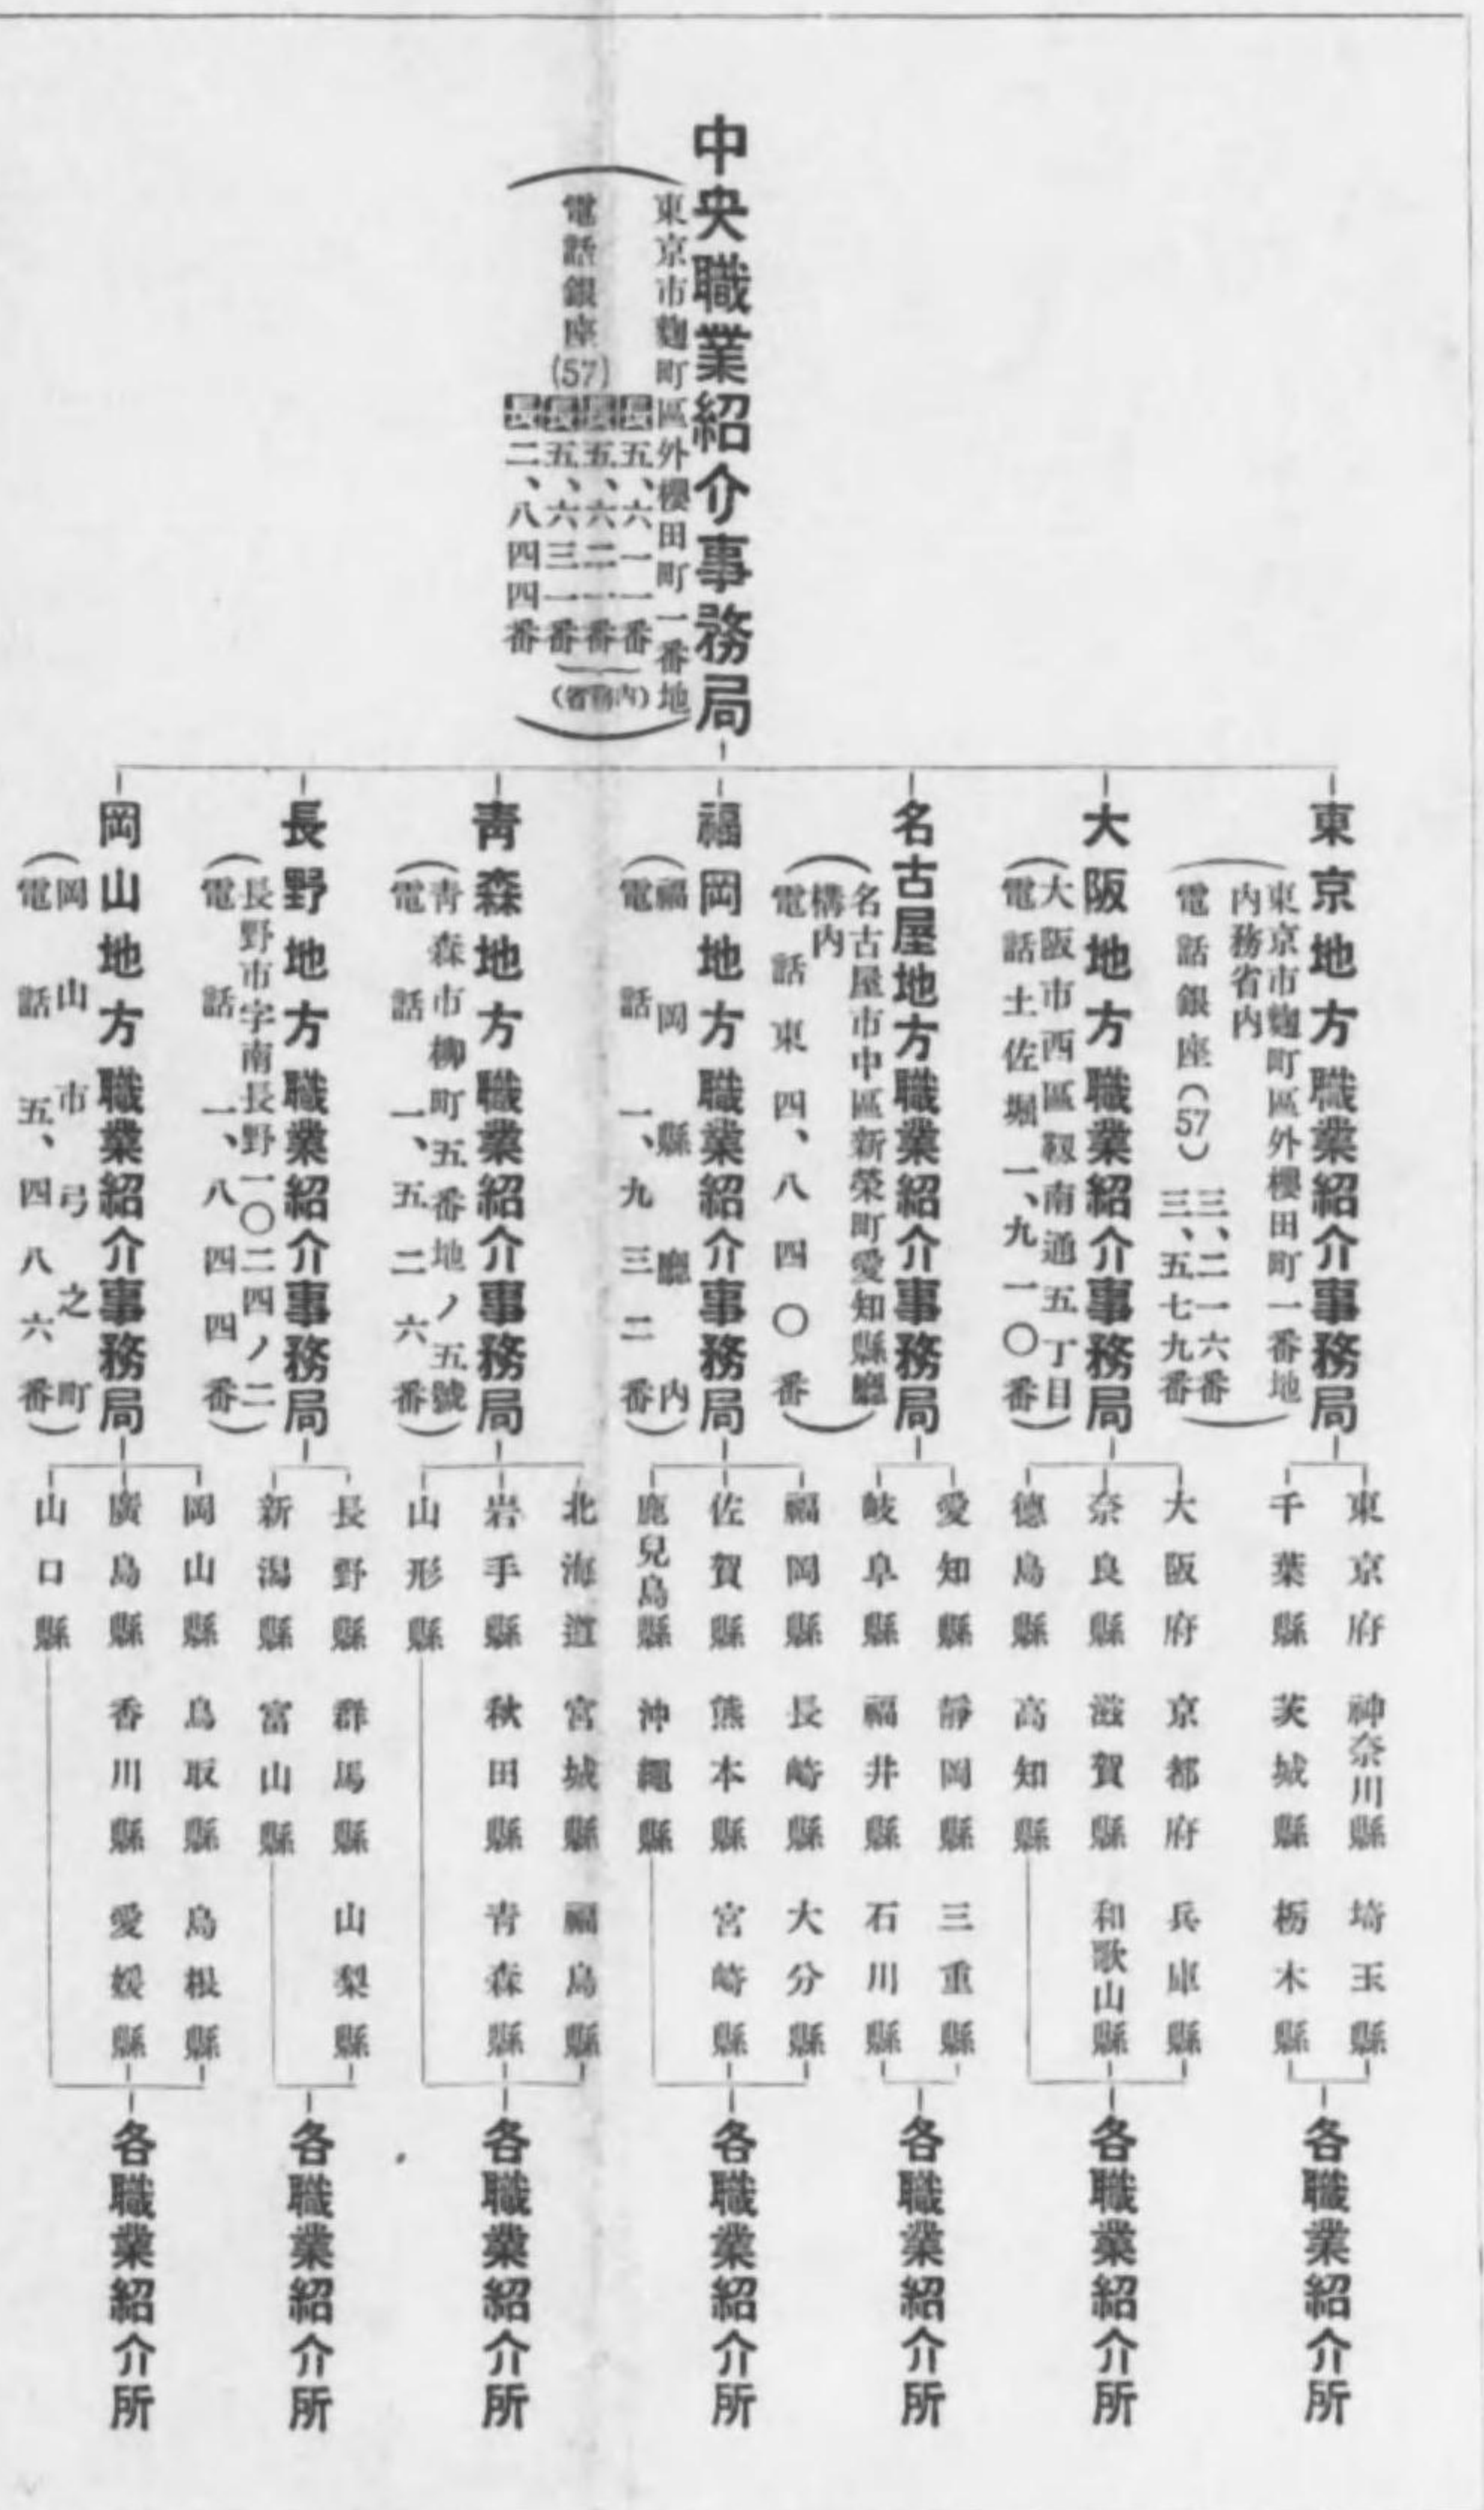 中央職業紹介事務局
東京市麴町區外櫻田町一番地
電話銀座(57)
長五、六一一番
長五、六二一番
長五、六三一番
長二、八四四番
(內務省)
東京地方職業紹介事務局
東京市麴町區外櫻田町一番地
內務省內
電話銀座(57)
三、二一六番
三、五七九番
東京府 神奈川縣 埼玉縣
千葉縣 茨城縣 栃木縣
各職業紹介所
大阪地方職業紹介事務局
(大阪市西區靱南通五丁目
電話土佐堀一、九一〇番)
大阪府 京都府 兵庫縣
奈良縣 滋賀縣 和歌山縣
德島縣 高知縣
各職業紹介所
名古屋地方職業紹介事務局
(名古屋市中區新榮町愛知縣廳
構內
電話東四、八四〇番)
愛知縣 靜岡縣 三重縣
岐阜縣 福井縣 石川縣
各職業紹介所
福岡地方職業紹介事務局
(福岡縣廳內
電話一、九三二番)
福岡縣 長崎縣 大分縣
佐賀縣 熊本縣 宮崎縣
鹿兒島縣 沖繩縣
各職業紹介所
靑森地方職業紹介事務局
(靑森市柳町五番地ノ五號
電話一、五二六番)
北海道 宮城縣 福島縣
岩手縣 秋田縣 靑森縣
山形縣
各職業紹介所
長野地方職業紹介事務局
(長野市字南長野一〇二四ノ二
電話一、八四四番)
長野縣 群馬縣 山梨縣
新潟縣 富山縣
各職業紹介所
岡山地方職業紹介事務局
(岡山市弓之町
電話五、四八六番)
岡山縣 鳥取縣 島根縣
廣島縣 香川縣 愛媛縣
山口縣
各職業紹介所